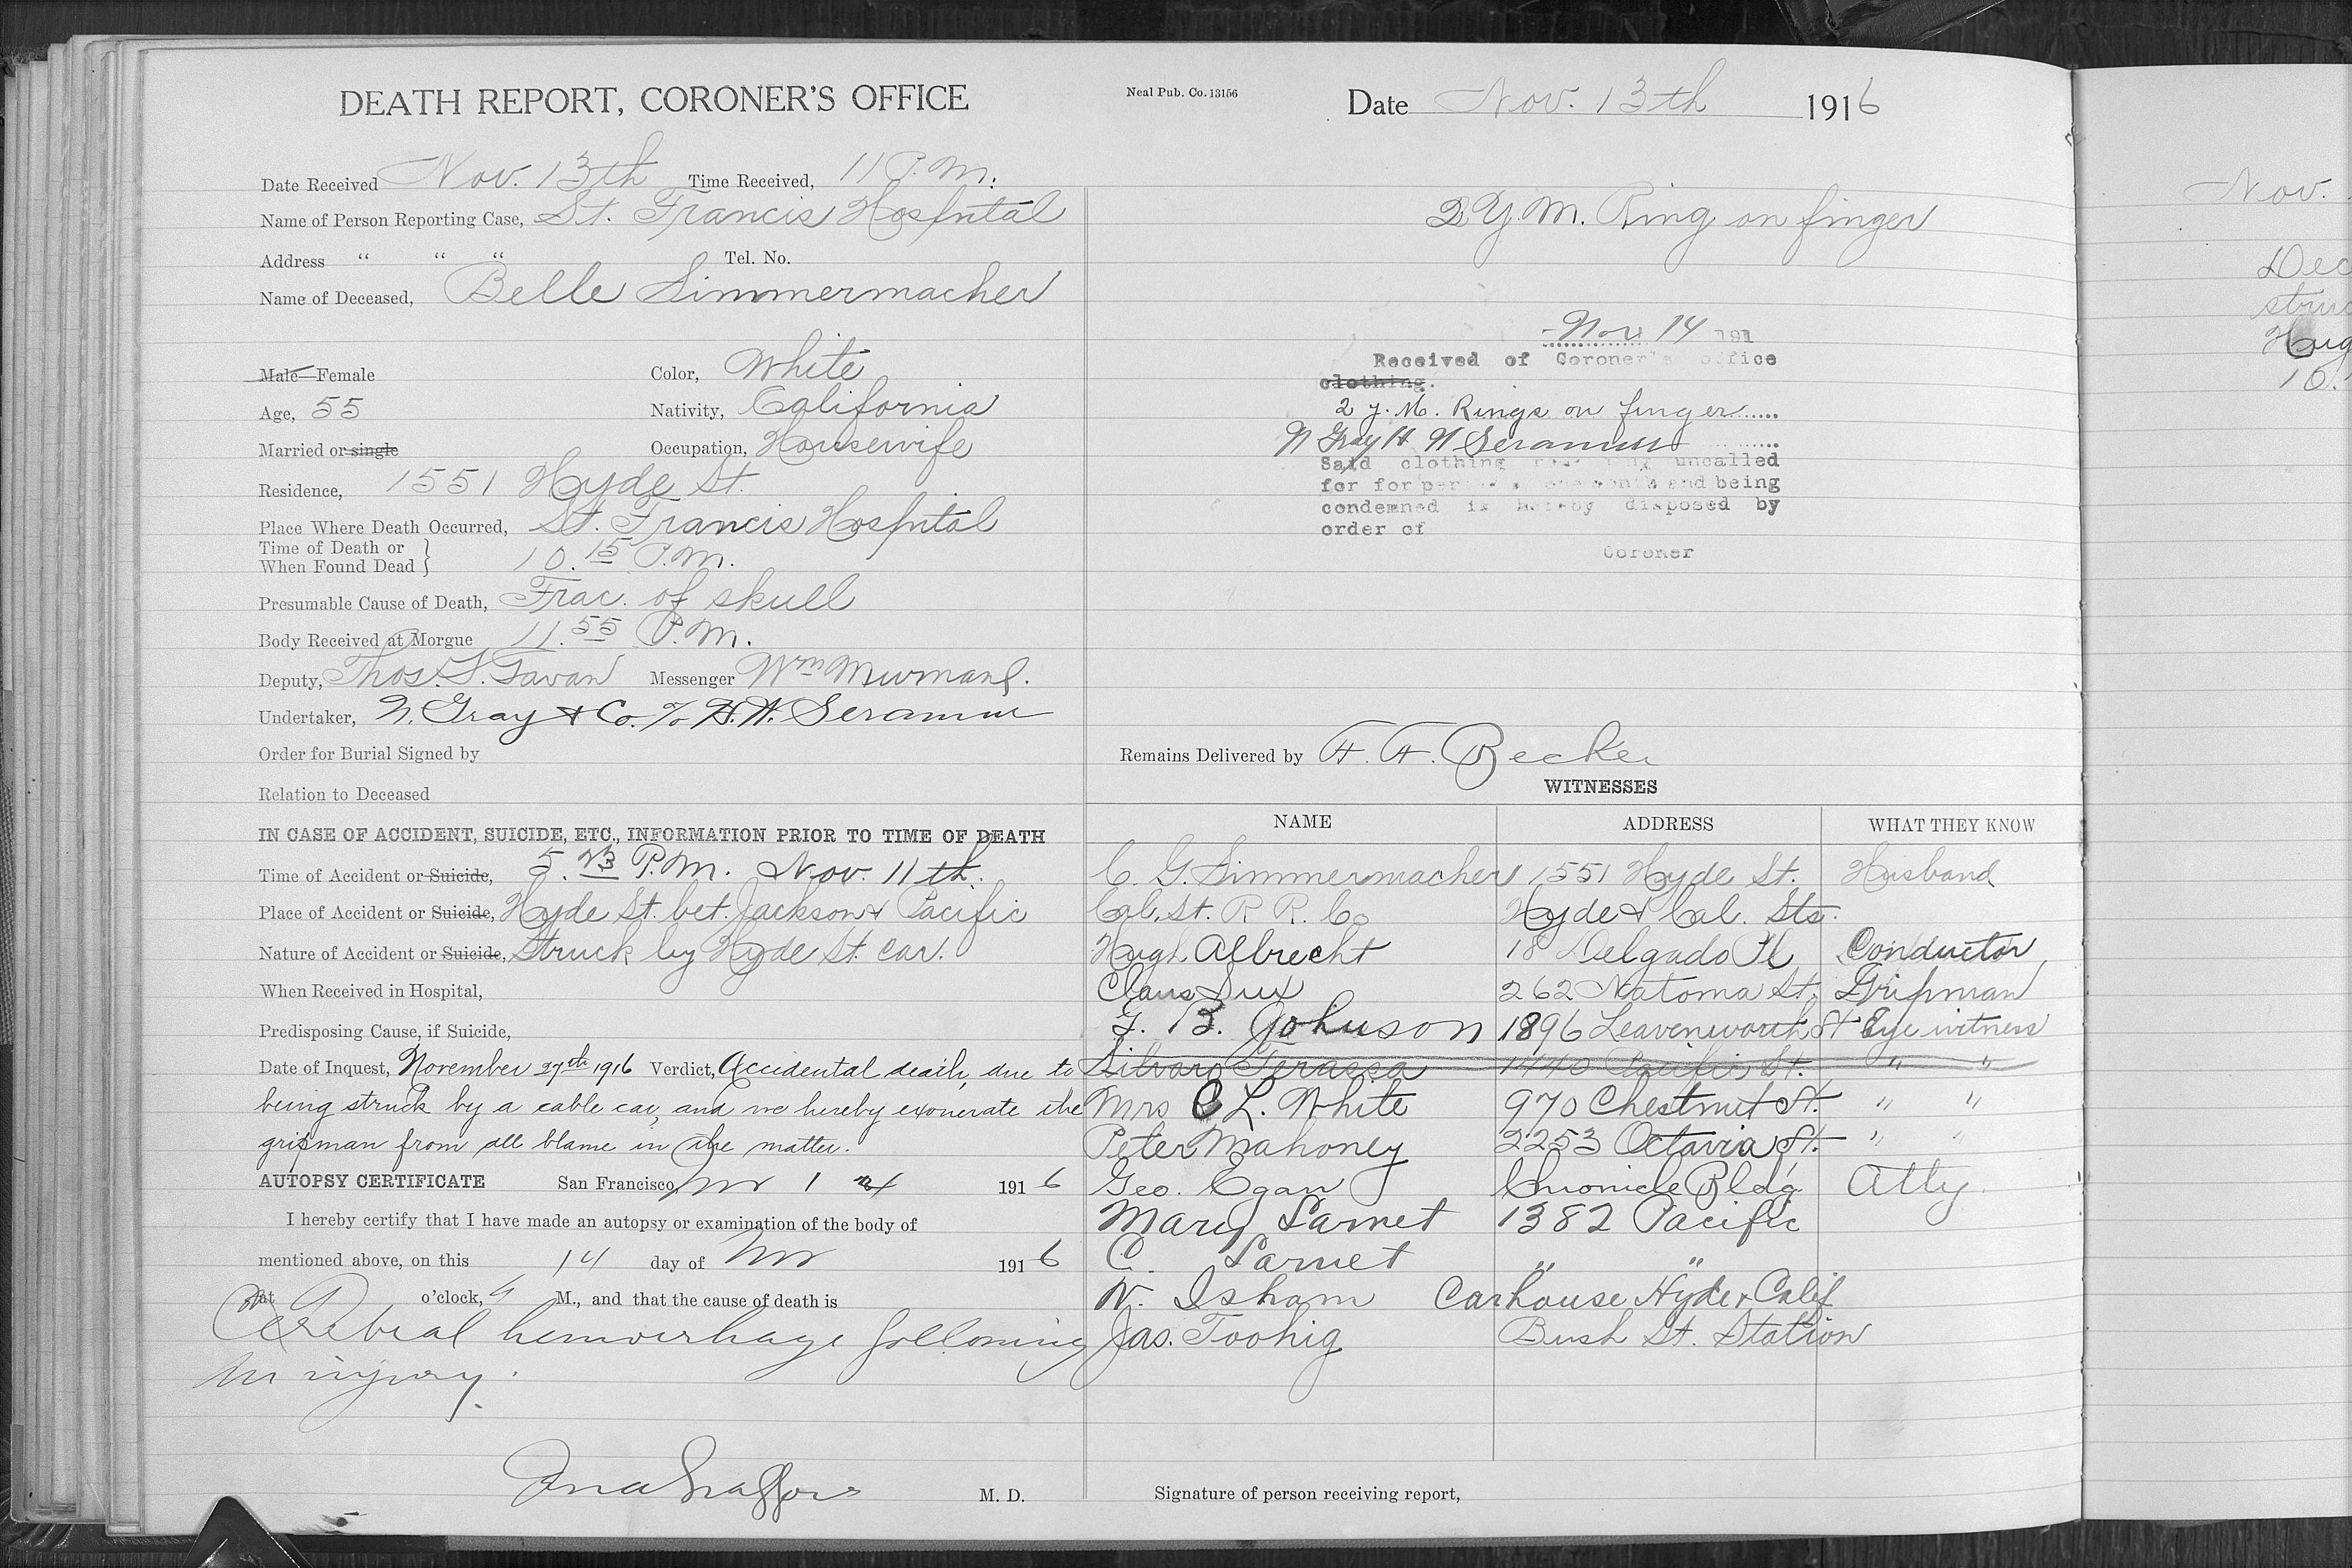 DEATH REPORT, CORONER'S OFFICE
Neal Pub. Co. 13156
Date Nov. 13th 1916
Date Received Nov. 13th Time Received, 11 P.M.
Name of Person Reporting Case, St. Francis Hospital
Address " " " Tel. No.
Name of Deceased, Belle Simmermacher
Male—Female Color, White
Age, 55 Nativity, California
Married or single Occupation, Housewife
Residence, 1551 Hyde St.
Place Where Death Occurred, St. Francis Hospital
Time of Death or
When Found Dead } 10.15 P.M.
Presumable Cause of Death, Frac. of skull
Body Received at Morgue 11.55 P.M.
Deputy, Thos. F. Gavan Messenger Wm
Undertaker, N. Gray & Co. H.W.
Order for Burial Signed by
Relation to Deceased
IN CASE OF ACCIDENT, SUICIDE, ETC., INFORMATION PRIOR TO TIME OF DEATH
Time of Accident or Suicide, 5. P.M. Nov. 11th.
Place of Accident or Suicide, Hyde St. bet. Jackson & Pacific
Nature of Accident or Suicide, Struck by Hyde St. car.
When Received in Hospital,
Predisposing Cause, if Suicide,
Date of Inquest, November 27th 1916 Verdict, Accidental death, due to
being struck by a cable car, and we hereby exonerate the
gripman from all blame in the matter.
AUTOPSY CERTIFICATE San Francisco, Nov 14 1916
I hereby certify that I have made an autopsy or examination of the body of
mentioned above, on this 14 day of Nov 1916
at o'clock, M., and that the cause of death is
Cerebral hemorrhage following
injury.
M. D.
2 Y.M. Ring on finger
Nov 14 191
Received of Coroner's office
clothing.
2 y. M. Rings on finger
N Gray H W
Said clothing uncalled
for for and being
condemned is hereby disposed by
order of
Coroner
Remains Delivered by F. F. Becker
WITNESSES
NAME ADDRESS WHAT THEY KNOW
C. G. Simmermacher 1551 Hyde St. Husband
Cal. St. R R. Co Hyde & Cal. Sts.
Hugh Albrecht 18 Delgado Pl Conductor
Claus 262 Natoma St. Gripman
B. Johnson 1896 Leavenworth St Eye witness
1440 Pacific St. " "
Mrs C L. White 970 Chestnut St. " "
Peter Mahoney 2253 Octavia St. " "
Geo. Egan Chronicle Bldg. Atty.
Mary 1382 Pacific
C. " "
W. Isham Carhouse Hyde & Calif
Jas. Toohig Bush St. Station
Signature of person receiving report,
Nov.
Dec
struc
Hug
10.